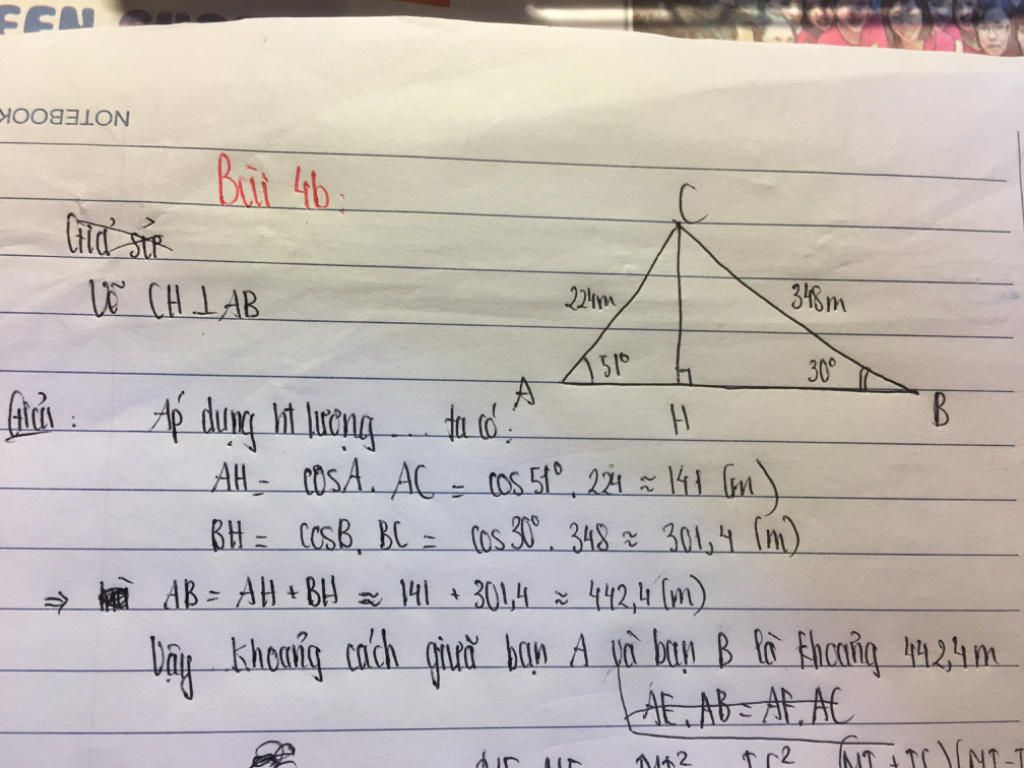 NOTEBOOK
Bài 4b:
Giả sử
Vẽ CH ⊥ AB
C
224m
348m
51°
30°
A
H
B
Giải: Áp dụng ht lượng ... ta có:
AH = cosA. AC = cos 51°. 224 ≈ 141 (m)
BH = cosB. BC = cos 30°. 348 ≈ 301,4 (m)
⇒ AB = AH + BH ≈ 141 + 301,4 ≈ 442,4 (m)
Vậy khoảng cách giữa bạn A và bạn B là khoảng 442,4m
AE. AB = AF. AC